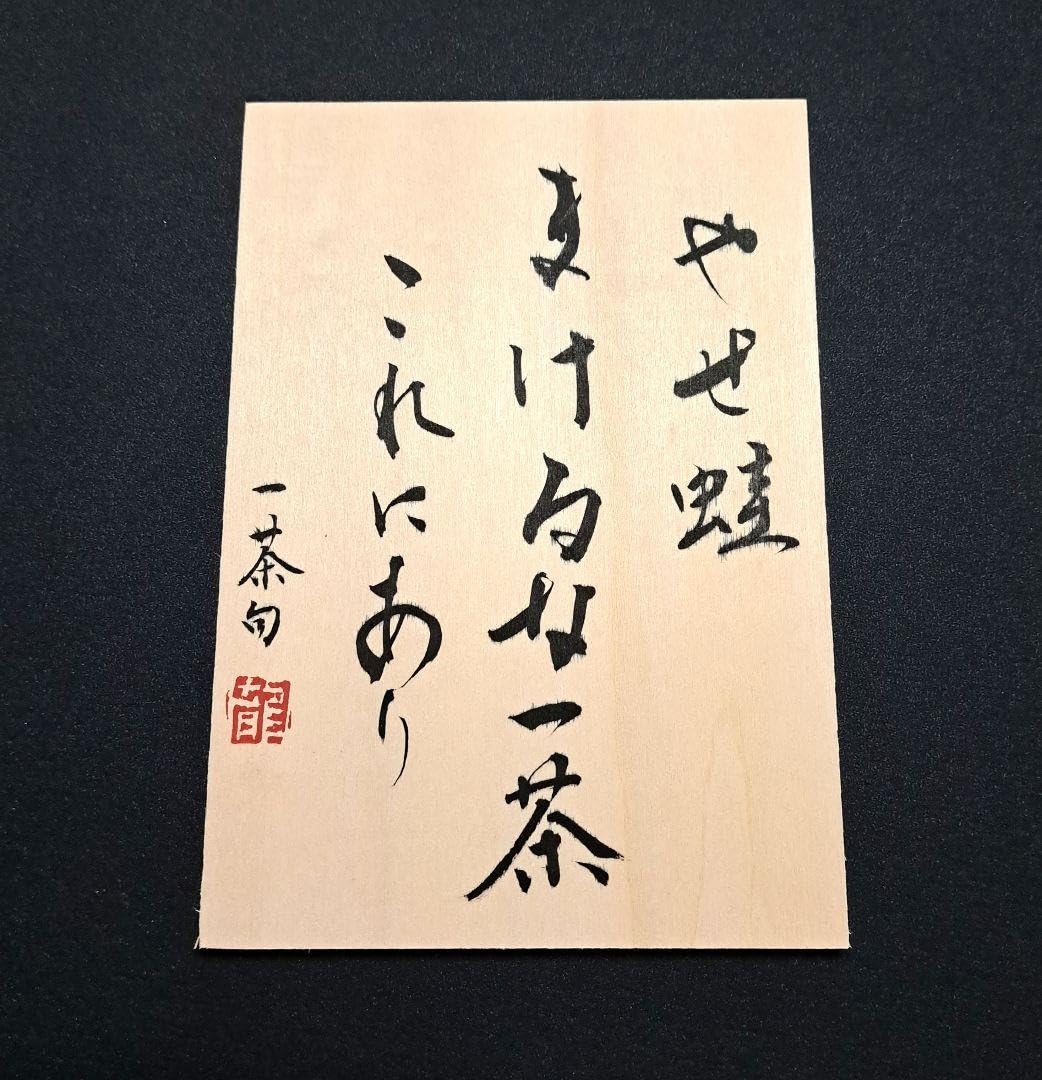 やせ蛙
まけるな一茶
これにあり
一茶句